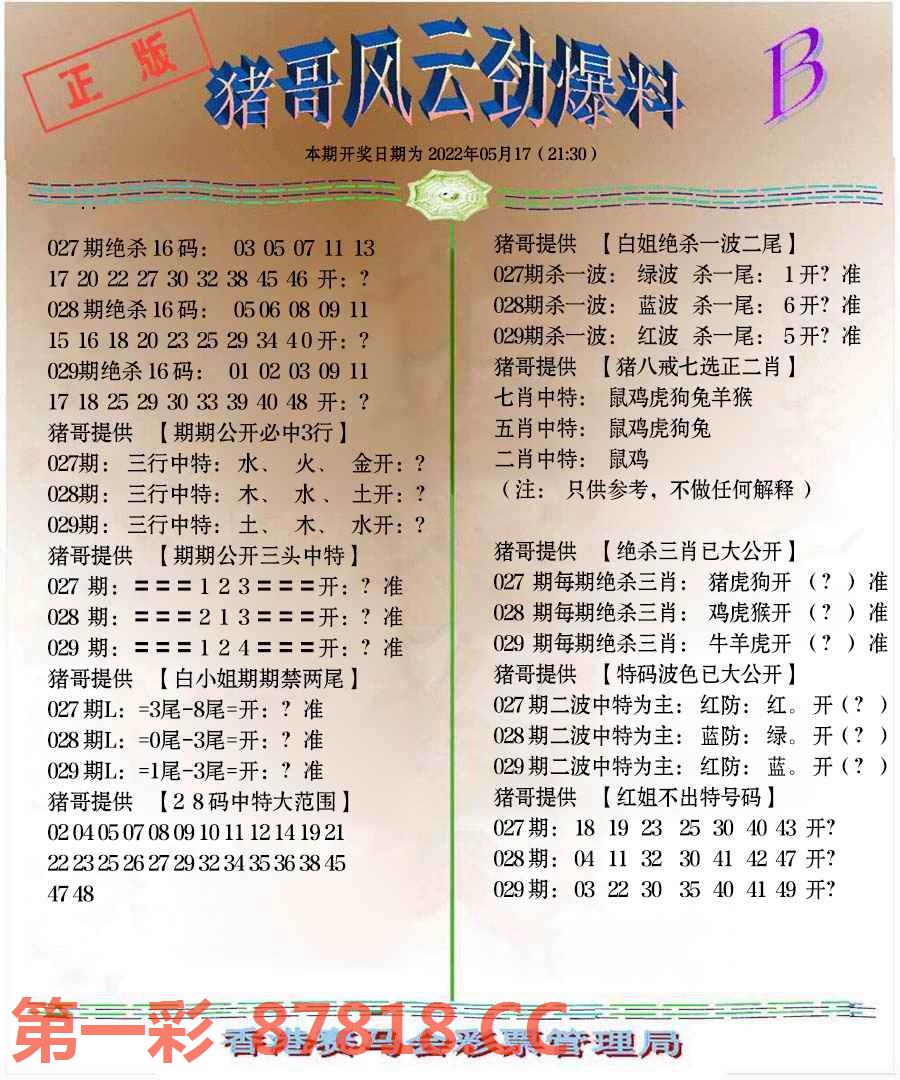 正版
猪哥风云劲爆料
B
本期开奖日期为 2022年05月17（21:30）
027期绝杀16码： 03 05 07 11 13
17 20 22 27 30 32 38 45 46 开：?
028期绝杀16码： 05 06 08 09 11
15 16 18 20 23 25 29 34 4 0 开：?
029期绝杀16码： 01 02 03 09 11
17 18 25 29 30 33 39 40 48 开：?
猪哥提供 【期期公开必中3行】
027期： 三行中特：水、 火、 金开：?
028期： 三行中特：木、 水、 土开：?
029期： 三行中特：土、 木、 水开：?
猪哥提供 【期期公开三头中特】
027 期：===1 2 3===开：? 准
028 期：===2 1 3===开：? 准
029 期：===1 2 4===开：? 准
猪哥提供 【白小姐期期禁两尾】
027期L：=3尾-8尾=开：? 准
028期L：=0尾-3尾=开：? 准
029期L：=1尾-3尾=开：? 准
猪哥提供 【2 8码中特大范围】
02 04 05 07 08 09 10 11 12 14 19 21
22 23 25 26 27 29 32 34 35 36 38 45
47 48
猪哥提供 【白姐绝杀一波二尾】
027期杀一波： 绿波 杀一尾： 1开? 准
028期杀一波： 蓝波 杀一尾： 6开? 准
029期杀一波： 红波 杀一尾： 5开? 准
猪哥提供 【猪八戒七选正二肖】
七肖中特： 鼠鸡虎狗兔羊猴
五肖中特： 鼠鸡虎狗兔
二肖中特： 鼠鸡
（注： 只供参考，不做任何解释）
猪哥提供 【绝杀三肖已大公开】
027 期每期绝杀三肖： 猪虎狗开 （? ）准
028 期每期绝杀三肖： 鸡虎猴开 （? ）准
029 期每期绝杀三肖： 牛羊虎开 （? ）准
猪哥提供 【特码波色已大公开】
027期二波中特为主： 红防： 红。开（? ）
028期二波中特为主： 蓝防： 绿。开（? ）
029期二波中特为主： 红防： 蓝。开（? ）
猪哥提供 【红姐不出特号码】
027期： 18 19 23 25 30 40 43 开?
028期： 04 11 32 30 41 42 47 开?
029期： 03 22 30 35 40 41 49 开?
第一彩 87818.CC
香港赛马会彩票管理局